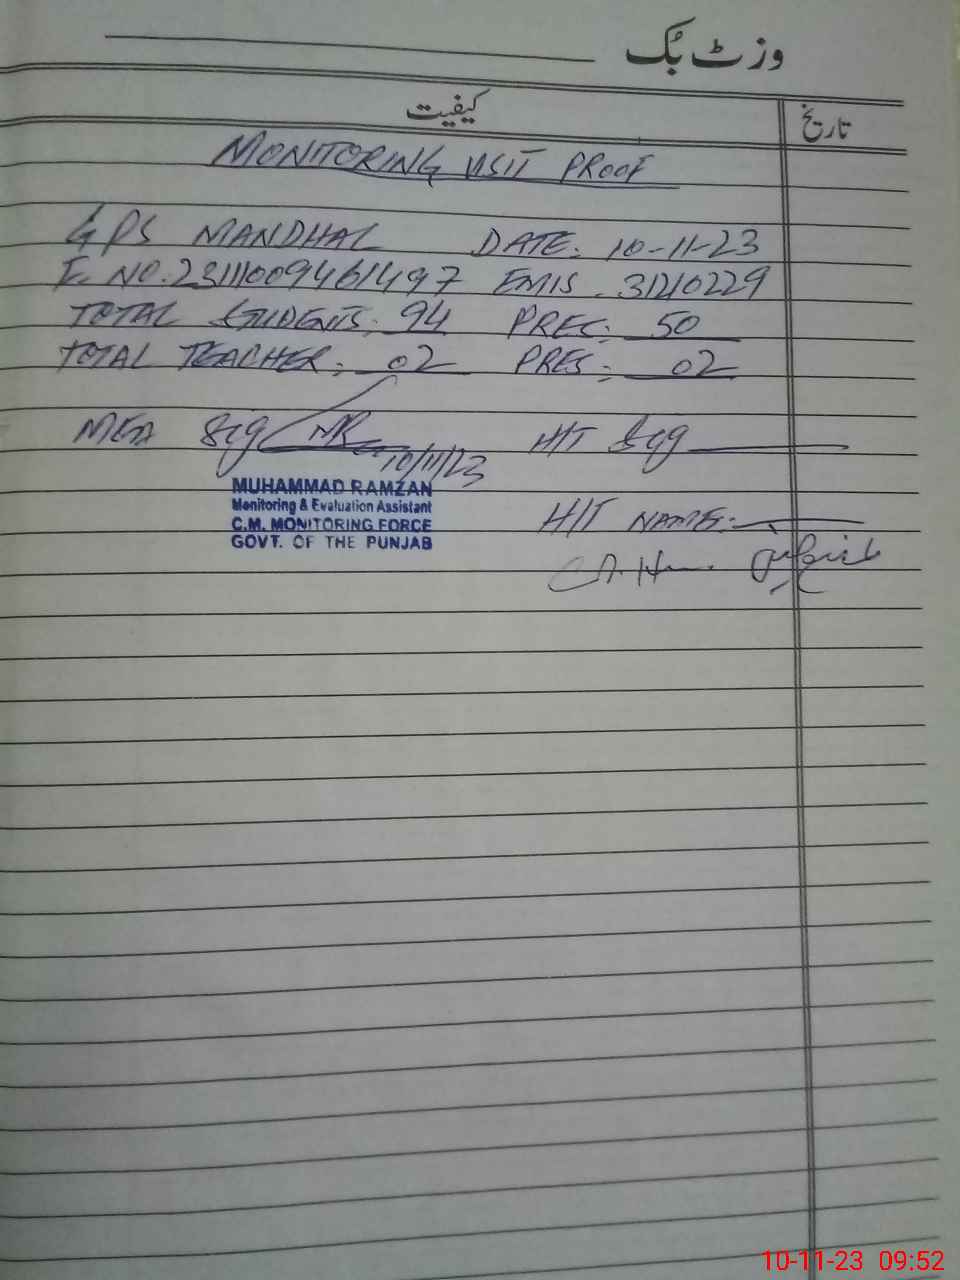 وزٹ بُک
کیفیت تاریخ
MONITORING VISIT PROOF
GPS MANDHAL DATE: 10-11-23
E. NO. 23111009461497 EMIS. 31210229
TOTAL STUDENTS: 94 PRES: 50
TOTAL TEACHER: 02 PRES: 02
MEA Sig H/T Sig
10/11/23
MUHAMMAD RAMZAN
Monitoring & Evaluation Assistant
C.M. MONITORING FORCE
GOVT. OF THE PUNJAB
H/T NAME:
10-11-23 09:52